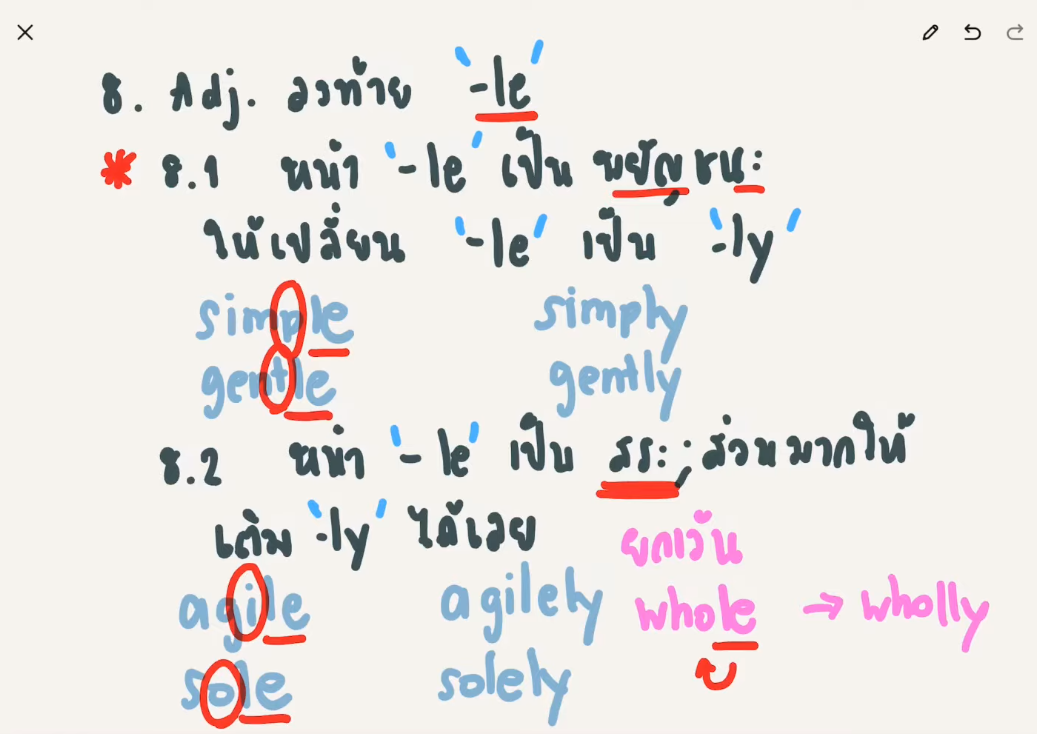 8. Adj. ลงท้าย '-le'
* 8.1 หน้า '-le' เป็น พยัญชนะ
ให้เปลี่ยน '-le' เป็น '-ly'
simple simply
gentle gently
8.2 หน้า '-le' เป็น สระ ; ส่วนมากให้
เติม '-ly' ได้เลย
ยกเว้น
agile agilely whole → wholly
sole solely